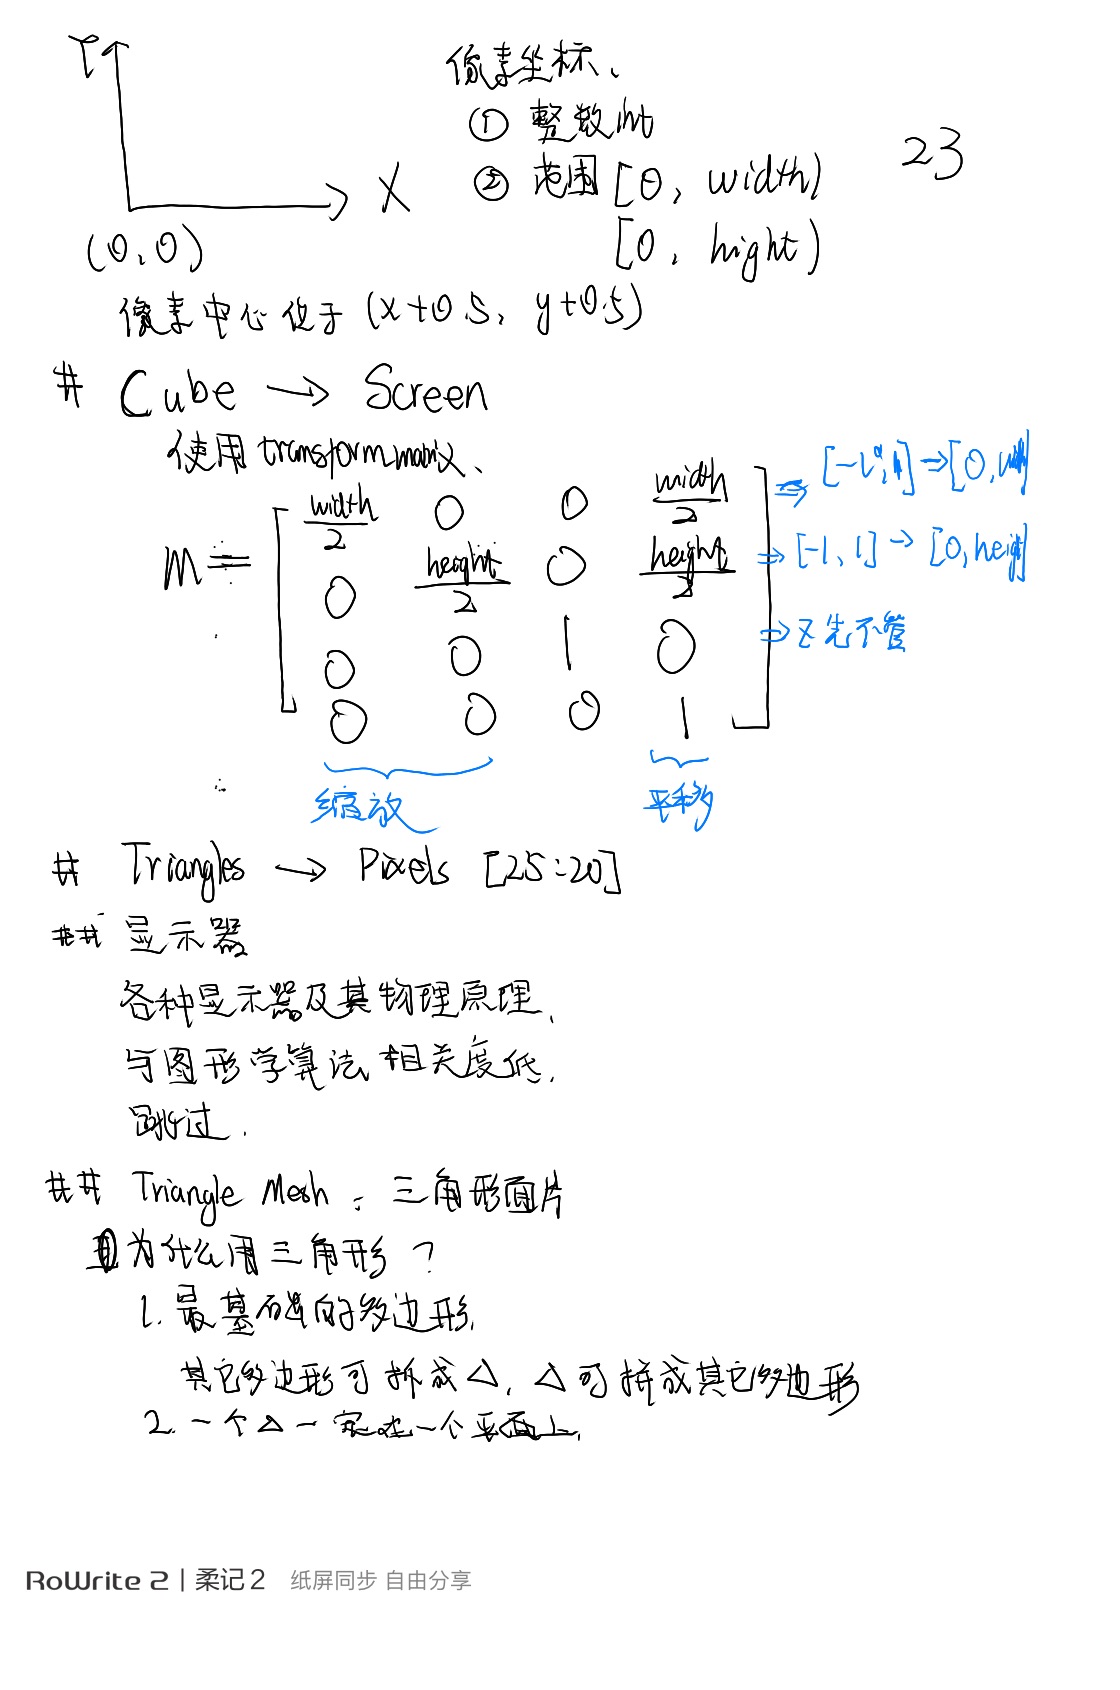 Y
像素坐标、
① 整数 int
23
② 范围 [0, width)
X
[0, hight)
(0,0)
像素中心位于 (x+0.5, y+0.5)
# Cube → Screen
使用 transform matrix、
M = [ width/2 0 0 width/2 ] ⇒ [-1, 1] → [0, width]
0 height/2 0 height/2 ⇒ [-1, 1] → [0, height]
0 0 1 0 ⇒ Z先不管
0 0 0 1
缩放 平移
# Triangles → Pixels [25:20]
## 显示器
各种显示器及其物理原理、
与图形学算法相关度低、
跳过.
## Triangle Mesh : 三角形面片
①为什么用三角形?
1. 最基础的多边形、
其它多边形可拆成△, △可拼成其它多边形
2. 一个△一定在一个平面上.
RoWrite 2 | 柔记 2 纸屏同步 自由分享